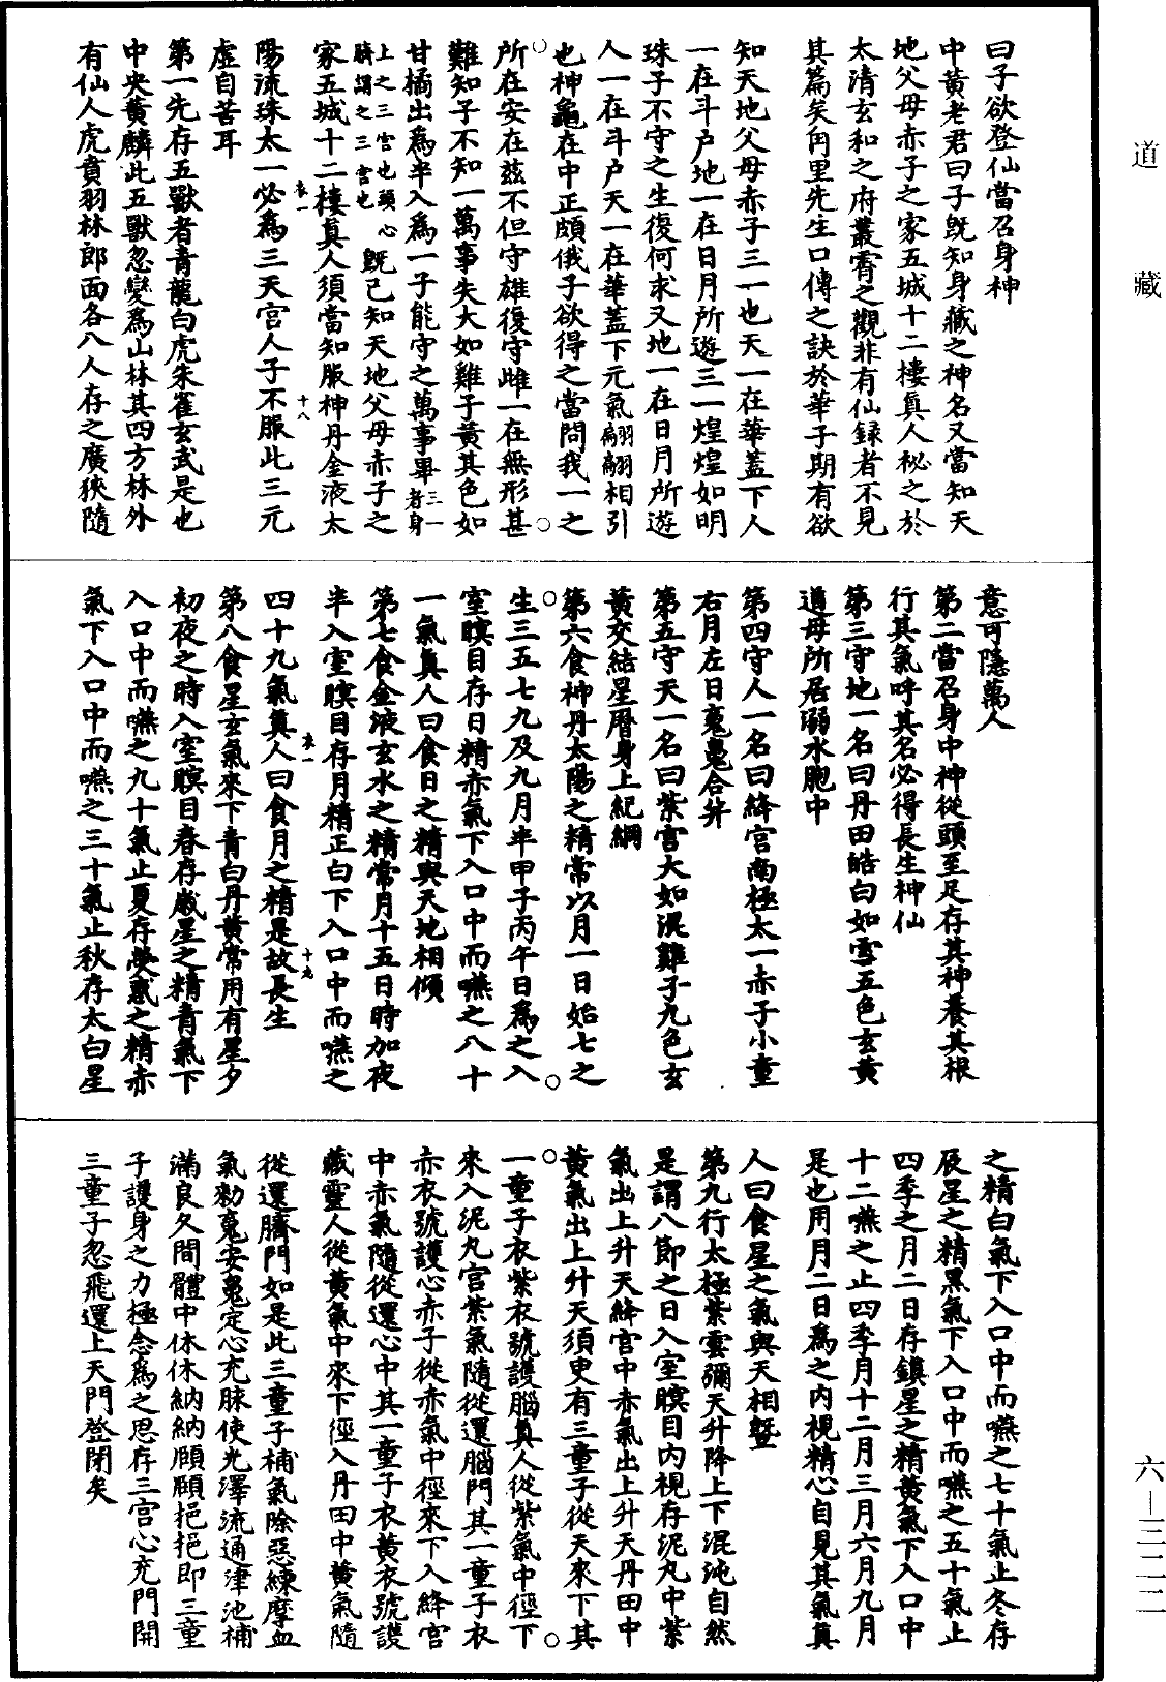 道藏
曰子欲登仙當召身神
中黃老君曰子既知身藏之神名又當知天
地父母赤子之家五城十二樓真人祕之於
太清玄和之府叢霄之觀非有仙録者不見
其篇矣角里先生口傳之訣於華子期有欲
知天地父母赤子三一也天一在華蓋下人
一在斗户地一在日月所遊三一煌煌如明
珠子不守之生復何求又地一在日月所遊
人一在斗户天一在華蓋下元氣翩翩相引
也神龜在中正頗俄子欲得之當問我一之
所在安在茲不但守雄復守雌一在無形甚
難知子不知一萬事失大如雞子黃其色如
甘橘出爲半入爲一子能守之萬事畢三一者身
上之三宮也頭心臍謂之三宮也既已知天地父母赤子之
家五城十二樓真人須當知服神丹金液太
陽流珠太一必爲三天宮人子不服此三元
虛自苦耳
第一先存五獸者青龍白虎朱雀玄武是也
中央黃麟此五獸忽變爲山林其四方林外
有仙人虎賁羽林郎面各八人存之廣狹隨
意可隱萬人
第二當召身中神從頭至足存其神養其根
行其氣呼其名必得長生神仙
第三守地一名曰丹田皓白如雪五色玄黃
道母所居溺水胞中
第四守人一名曰絳宮南極太一赤子小童
右月左日魂魄合并
第五守天一名曰紫宮大如混雞子九色玄
黃交結星曆身上紀綱
第六食神丹太陽之精常以月一日始七之
生三五七九及九月半甲子丙午日爲之入
室瞑目存日精赤氣下入口中而嚥之八十
一氣真人曰食日之精與天地相傾
第七食金液玄水之精常月十五日時加夜
半入室瞑目存月精正白下入口中而嚥之
四十九氣真人曰食月之精是故長生
第八食星玄氣來下青白丹黃常用有星夕
初夜之時入室瞑目春存歲星之精青氣下
入口中而嚥之九十氣止夏存熒惑之精赤
氣下入口中而嚥之三十氣止秋存太白星
之精白氣下入口中而嚥之七十氣止冬存
辰星之精黑氣下入口中而嚥之五十氣止
四季之月二日存鎮星之精黃氣下入口中
十二嚥之止四季月十二月三月六月九月
是也用月二日爲之内視精心自見其氣真
人曰食星之氣與天相曁
第九行太極紫雲彌天升降上下混沌自然
是謂八節之日入室瞑目内視存泥丸中紫
氣出上升天絳宮中赤氣出上升天丹田中
黃氣出上升天須史有三童子從天來下其
一童子衣紫衣號護腦真人從紫氣中徑下
來入泥丸宮紫氣隨從還腦門其一童子衣
赤衣號護心赤子從赤氣中徑來下入絳宮
中赤氣隨從還心中其一童子衣黃衣號護
藏靈人從黃氣中來下徑入丹田中黃氣隨
從還臍門如是此三童子補氣除惡練摩血
氣勑魂安魄定心充脉使光澤流通津池補
滿良久間體中休休納納頤頤挹挹即三童
子護身之力極念爲之思存三宮心充門開
三童子忽飛還上天門登閉矣
六—三二二